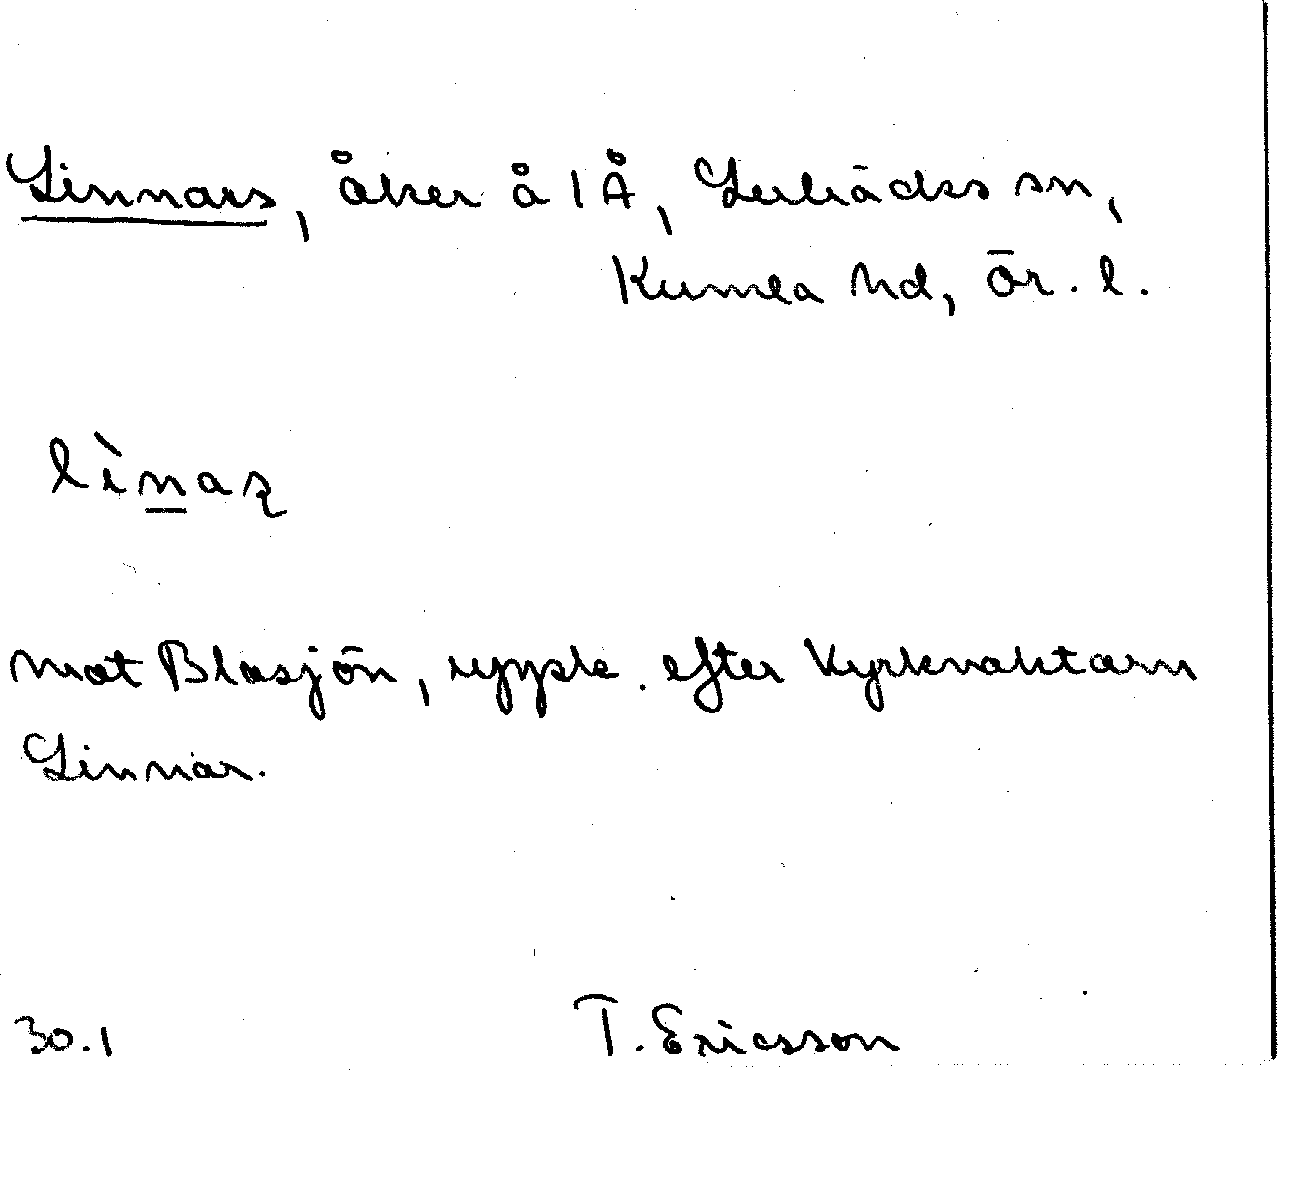 Linnars, åker å 1Å, Lerbäcks sn,
Kumla hd, Ör. l.
lìn̲aʂ
mot Blasjön, uppk. efter Kyrkvaktarn
Linnar.
30.1 T. Ericsson